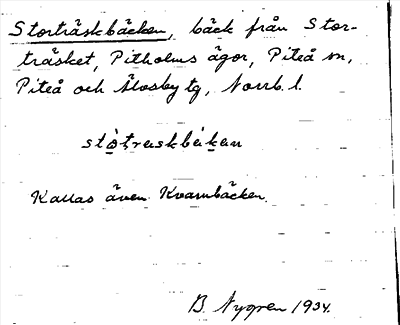 Storträskbäcken, bäck från Stor-
träsket, Pitholms ägor, Piteå sn,
Piteå och Älvsby tg, Norrb. l.
stòtraskbäkan
Kallas även Kvarnbäcken.
B. Nygren 1934.